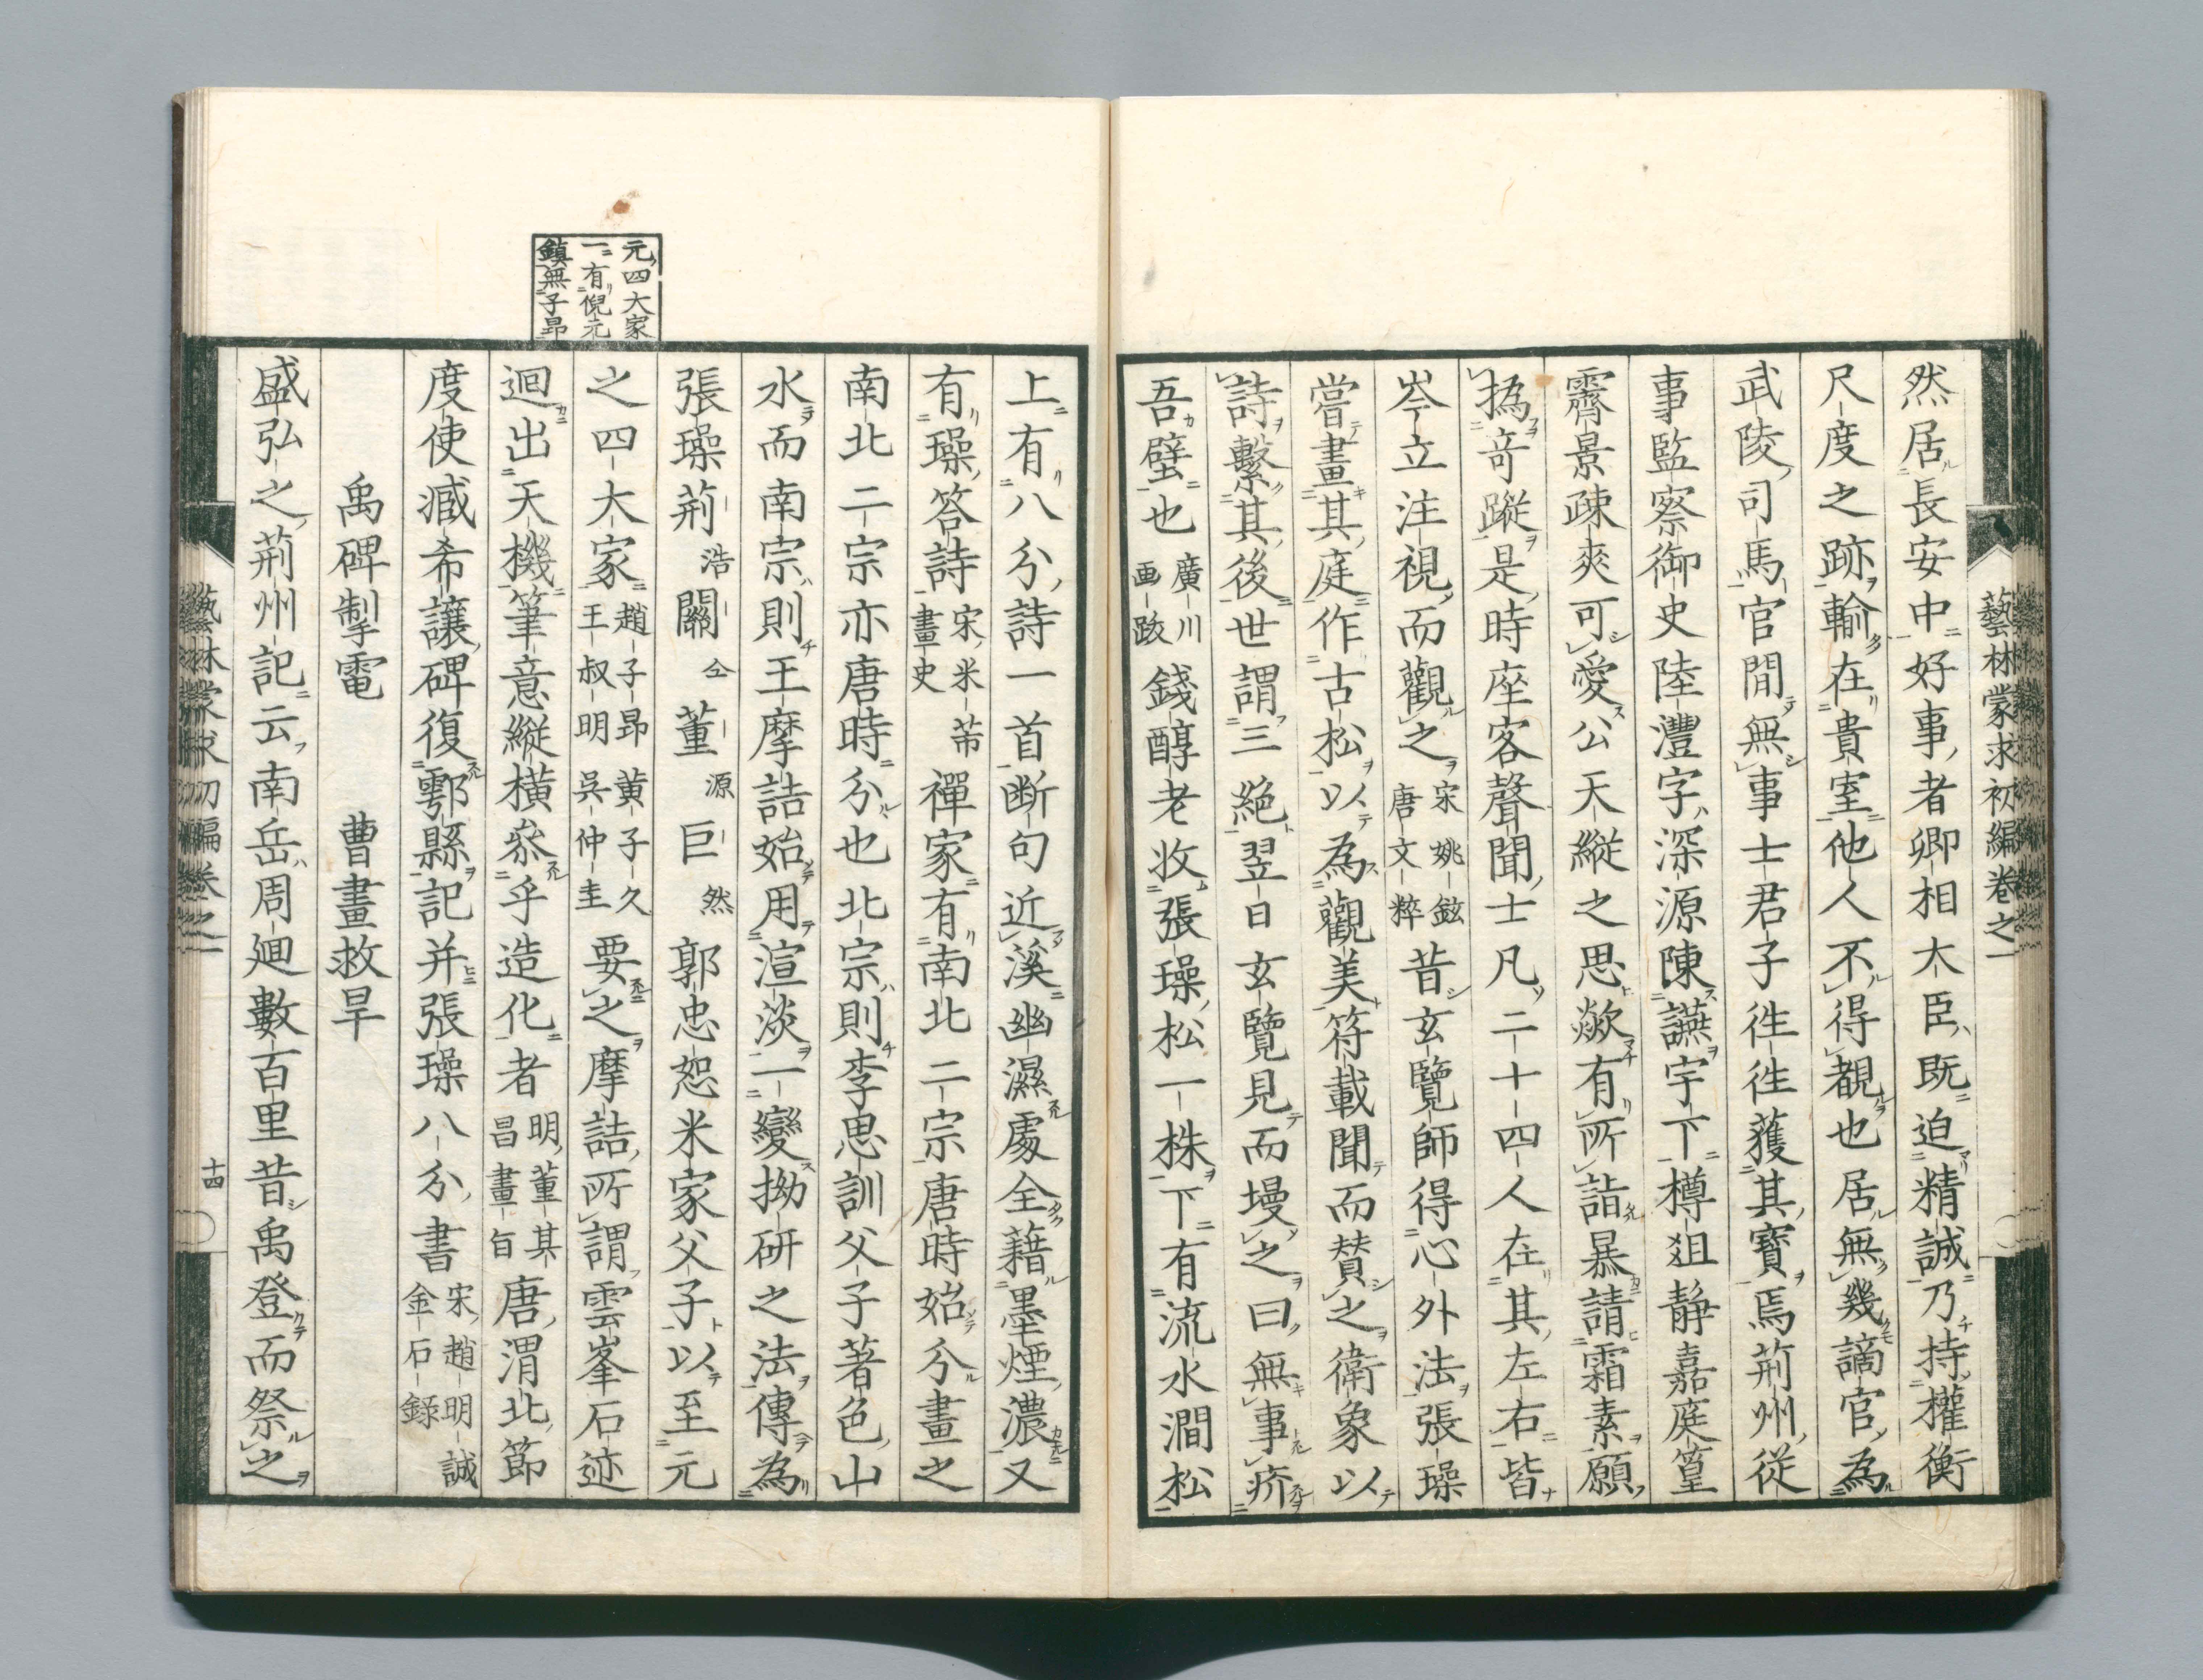 藝林蒙求初編卷之一
然居長安中好事者卿相大臣既迫精誠乃持權衡
尺度之跡輸在貴室他人不得覩也居無幾謫官為
武陵司馬官閒無事士君子徃徃獲其寶焉荊州從
事監察御史陸灃字深源陳讌宇下樽俎靜嘉庭篁
霽景疎爽可愛公天縦之思歘有所詣暴請霜素願
撝竒蹤是時座客聲聞士凡二十四人在其左右皆
岑立注視而觀之宋姚鉉唐文粹昔玄覽師得心外法張璪
嘗畫其庭作古松以為觀美符載聞而賛之衛象以
詩繫其後世謂三絕翌日玄覽見而墁之曰無事疥
吾壁也廣川画跋錢醇老收張璪松一株下有流水澗松
元四大家
一有倪元
鎮無子昂
上有八分詩一首断句近溪幽濕處全藉墨煙濃又
有璪答詩宋米芾畫史禪家有南北二宗唐時始分畫之
南北二宗亦唐時分也北宗則李思訓父子著色山
水而南宗則王摩詰始用渲淡一變拗研之法傳為
張璪荊浩關仝董源巨然郭忠恕米家父子以至元
之四大家趙子昂黄子久王叔明呉仲圭要之摩詰所謂雲峯石迹
迴出天機筆意縦横叅乎造化者明董其昌畫旨唐渭北節
度使臧希讓碑復鄠縣記并張璪八分書宋趙明誠金石録
禹碑掣電　曹畫救旱
盛弘之荊州記云南岳周廻數百里昔禹登而祭之
藝林蒙求初編卷之一
十四